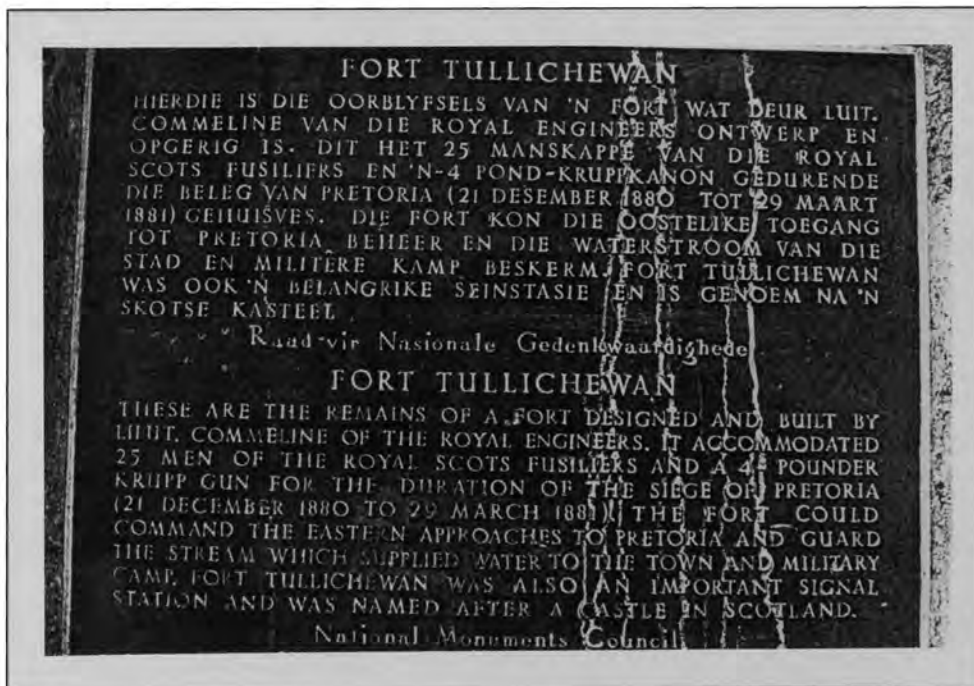 FORT TULLICHEWAN
HIERDIE IS DIE OORBLYFSELS VAN 'N FORT WAT DEUR LUIT.
COMMELINE VAN DIE ROYAL ENGINEERS ONTWERP EN
OPGERIG IS. DIT HET 25 MANSKAPPE VAN DIE ROYAL
SCOTS FUSILIERS EN 'N-4 POND-KRUPPKANON GEDURENDE
DIE BELEG VAN PRETORIA (21 DESEMBER 1880 TOT 29 MAART
1881) GEHUISVES. DIE FORT KON DIE OOSTELIKE TOEGANG
TOT PRETORIA BEHEER EN DIE WATERSTROOM VAN DIE
STAD EN MILITÊRE KAMP BESKERM. FORT TULLICHEWAN
WAS OOK 'N BELANGRIKE SEINSTASIE EN IS GENOEM NA 'N
SKOTSE KASTEEL
Raad vir Nasionale Gedenkwaardighede
FORT TULLICHEWAN
THESE ARE THE REMAINS OF A FORT DESIGNED AND BUILT BY
LIEUT. COMMELINE OF THE ROYAL ENGINEERS. IT ACCOMMODATED
25 MEN OF THE ROYAL SCOTS FUSILIERS AND A 4- POUNDER
KRUPP GUN FOR THE DURATION OF THE SIEGE OF PRETORIA
(21 DECEMBER 1880 TO 29 MARCH 1881). THE FORT COULD
COMMAND THE EASTERN APPROACHES TO PRETORIA AND GUARD
THE STREAM WHICH SUPPLIED WATER TO THE TOWN AND MILITARY
CAMP. FORT TULLICHEWAN WAS ALSO AN IMPORTANT SIGNAL
STATION AND WAS NAMED AFTER A CASTLE IN SCOTLAND.
National Monuments Council